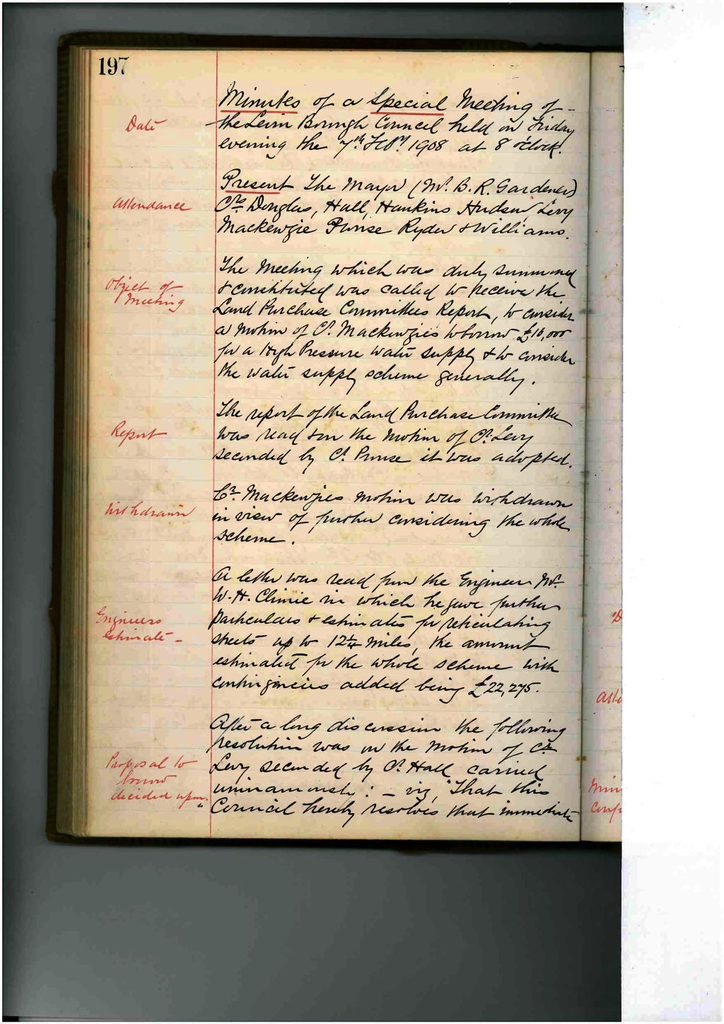 197
Minutes of a Special Meeting of
Date
the Levin Borough Council held on Friday
evening the 7th Feby 1908 at 8 o'clock.
Present The Mayor (Mr. B. R. Gardener)
Attendance
Crs Douglas, Hall, Hankins Hudson Levy
Mackenzie Prouse Ryder & Williams.
Object of
Meeting
The Meeting which was duly summoned
& constituted was called to receive the
Land Purchase Committees Report, to consider
a motion of Cr. Mackenzies to borrow £18,000
for a High Pressure water supply & to consider
the water supply scheme generally.
Report
The report of the Land Purchase Committee
was read & on the motion of Cr. Levy
seconded by Cr. Prouse it was adopted.
Withdrawn
Cr. Mackenzies motion was withdrawn
in view of further considering the whole
scheme.
Engineers
Estimate –
A letter was read from the Engineer Mr.
W. H. Climie in which he gave further
particulars & estimates for reticulating
streets up to 12¼ miles, the amount
estimated for the whole scheme with
contingencies added being £22,275.
Proposal to
borrow
decided upon
After a long discussion the following
resolution was on the motion of Cr.
Levy seconded by Cr. Hall carried
unanimously: – viz, "That this
"Council hereby resolves that immediate